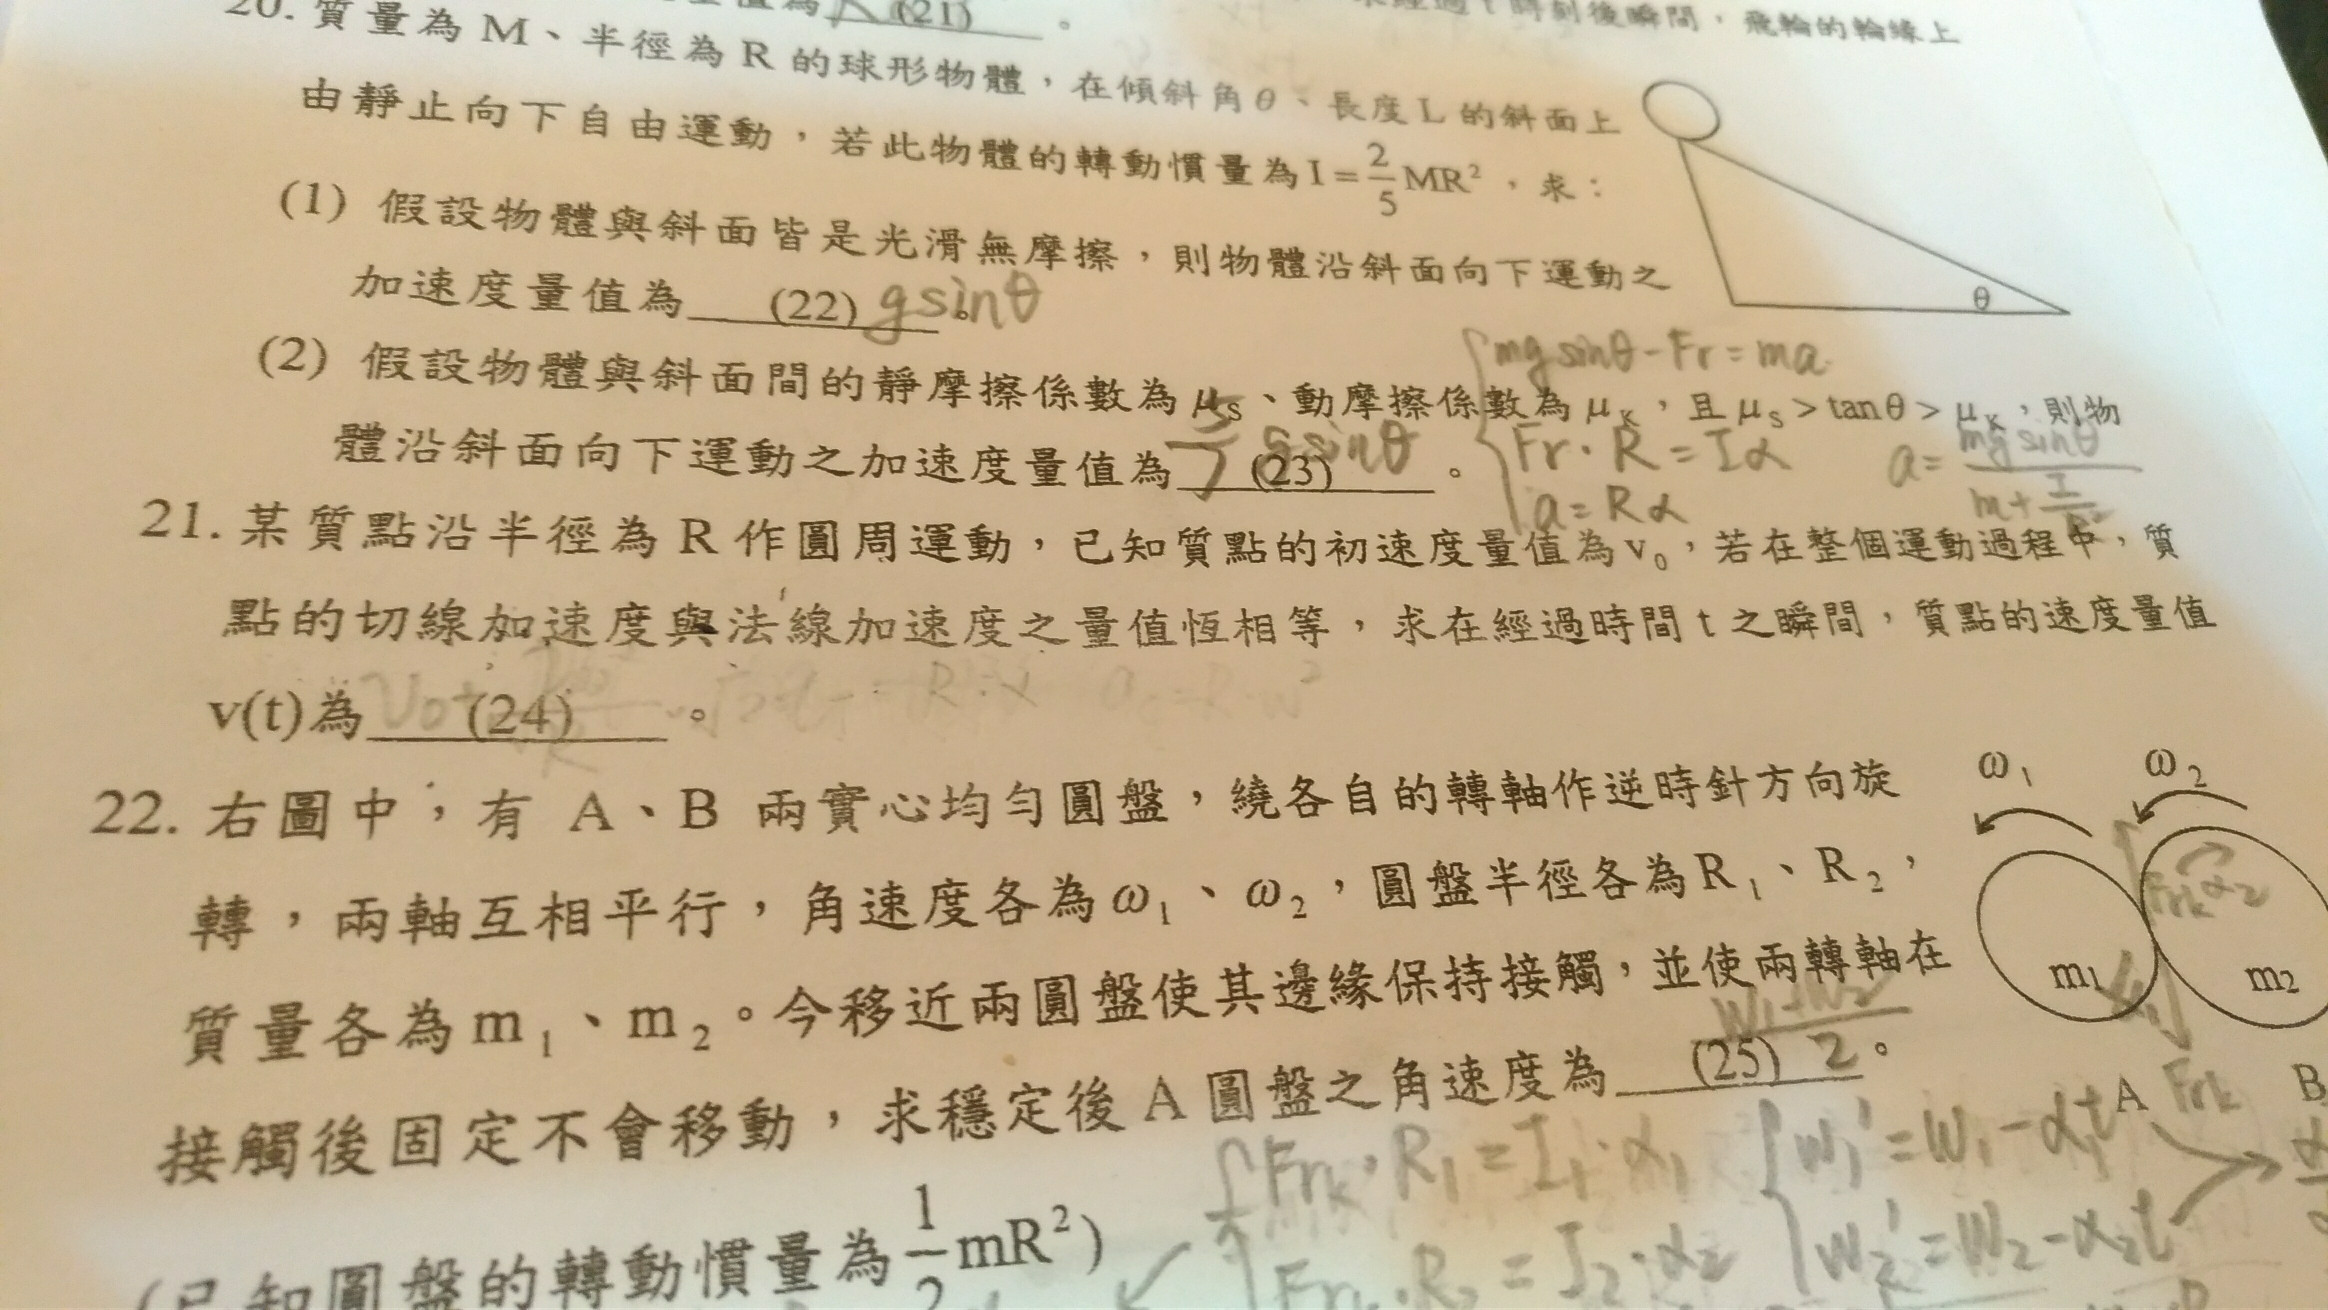 (21) 。
時刻後瞬間，飛輪的輪緣上
20. 質量為 M、半徑為 R 的球形物體，在傾斜角 θ、長度 L 的斜面上
由靜止向下自由運動，若此物體的轉動慣量為 I = 2/5 MR²，求：
(1) 假設物體與斜面皆是光滑無摩擦，則物體沿斜面向下運動之
加速度量值為 (22) 。 gsinθ
θ
mg sinθ - Fr = ma
(2) 假設物體與斜面間的靜摩擦係數為 μs、動摩擦係數為 μK，且 μs > tanθ > μK，則物
體沿斜面向下運動之加速度量值為 (23) 。
Fr · R = Iα
a = Rα
a = mg sinθ / m + I/R²
21. 某質點沿半徑為 R 作圓周運動，已知質點的初速度量值為 v₀，若在整個運動過程中，質
點的切線加速度與法線加速度之量值恆相等，求在經過時間 t 之瞬間，質點的速度量值
v(t)為 (24) 。
22. 右圖中，有 A、B 兩實心均勻圓盤，繞各自的轉軸作逆時針方向旋
轉，兩軸互相平行，角速度各為 ω₁、ω₂，圓盤半徑各為 R₁、R₂，
質量各為 m₁、m₂。今移近兩圓盤使其邊緣保持接觸，並使兩轉軸在
接觸後固定不會移動，求穩定後 A 圓盤之角速度為 (25) 。
(已知圓盤的轉動慣量為 1/2 mR²)
ω₁ ω₂
m₁ m₂
A B
Frk
Frk · R₁ = I₁ · α₁
W₁' = W₁ - α₁t
Frk · R₂ = I₂ · α₂
W₂' = W₂ - α₂t